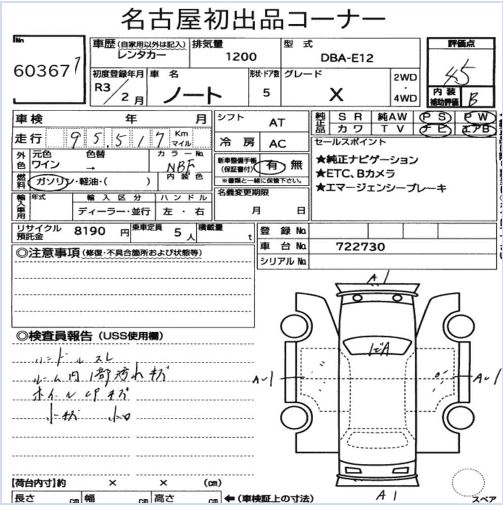 名古屋初出品コーナー
No.
60367
車歴 (自家用以外は記入) 排気量 型式
レンタカー 1200 DBA-E12
評価点
4.5
初度登録年月 車名 形状・ドア数 グレード 2WD ・ 4WD
R3 / 2月 ノート 5 X
内装補助評価 B
車検 年 月 シフト AT
純正品 SR 純AW PS PW
カワ TV ナビ エアB
走行 95,517 Km マイル 冷房 AC
外色 元色 色替 カラーNo.
ワイン → NBF
セールスポイント
★純正ナビゲーション
★ETC、Bカメラ
★エマージェンシーブレーキ
新車整備手帳(保証書付) 有・無
※書類と一緒に保管下さい。
燃料 ガソリン・軽油・( ) 内装色
名義変更期限
月 日
輸入車用 年式 輸入区分 ハンドル
ディーラー・並行 左・右
リサイクル預託金 8190 円 乗車定員 5 人 積載量 t
登録No.
車台No. 722730
シリアルNo.
◎注意事項 (修復・不具合箇所および状態等)
A1
◎検査員報告 (USS使用欄)
ハンドルスレ
ルーム内1部汚れキズ
ホイルCPキズ
A1
A1
【荷台内寸】約 × × (cm)
長さ cm 幅 cm 高さ cm ←(車検証上の寸法)
A1
スペア